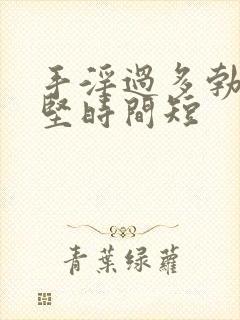 手淫過多勃
堅時間短
青葉綠蘿